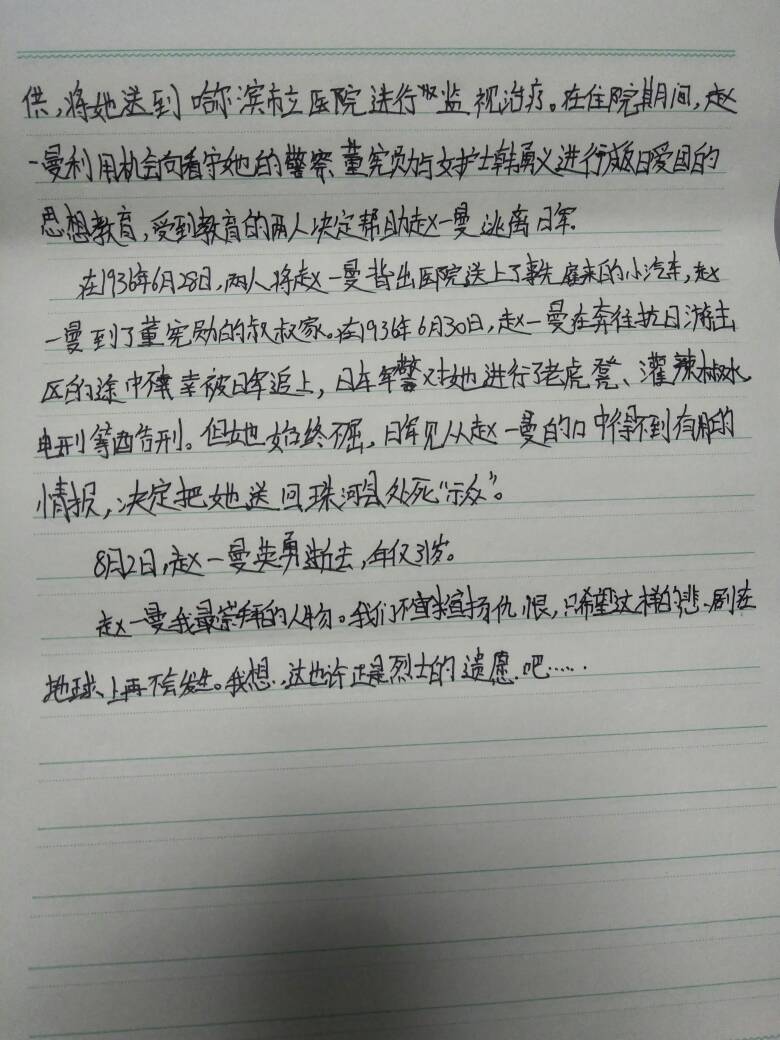 供，将她送到哈尔滨市立医院进行监视治疗。在住院期间，赵
一曼利用机会向看守她的警察董宪勋与女护士韩勇义进行反日爱国的
思想教育，受到教育的两人决定帮助赵一曼逃离日军。
在1936年6月28日，两人将赵一曼背出医院送上了事先雇来的小汽车，赵
一曼到了董宪勋的叔叔家。在1936年6月30日，赵一曼在奔往抗日游击
区的途中不幸被日军追上，日本军警对她进行了老虎凳、灌辣椒水，
电刑等酷刑。但她始终不屈，日军见从赵一曼的口中得不到有用的
情报，决定把她送回珠河县处死“示众”。
8月2日，赵一曼英勇逝去，年仅31岁。
赵一曼我最崇拜的人物。我们不宣扬仇恨，只希望这样的悲剧在
地球上再不会发生。我想，这也许正是烈士的遗愿吧……